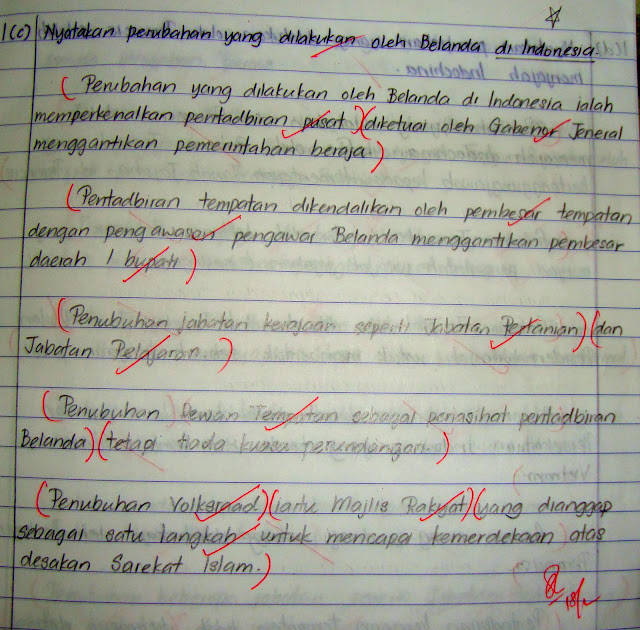 1(c) Nyatakan perubahan yang dilakukan oleh Belanda di Indonesia.
(Perubahan yang dilakukan oleh Belanda di Indonesia ialah
memperkenalkan pentadbiran pusat)(diketuai oleh Gabenor Jeneral
menggantikan pemerintahan beraja)
(Pentadbiran tempatan dikendalikan oleh pembesar tempatan
dengan pengawasan pengawai Belanda menggantikan pembesar
daerah / bupati)
(Penubuhan jabatan kerajaan seperti Jabatan Pertanian)(dan
Jabatan Pelajaran.)
(Penubuhan Dewan Tempatan sebagai penasihat pentadbiran
Belanda)(tetapi tiada kuasa perundangan.)
(Penubuhan Volksraad)(iaitu Majlis Rakyat)(yang dianggap
sebagai satu langkah untuk mencapai kemerdekaan atas
desakan Sarekat Islam.)